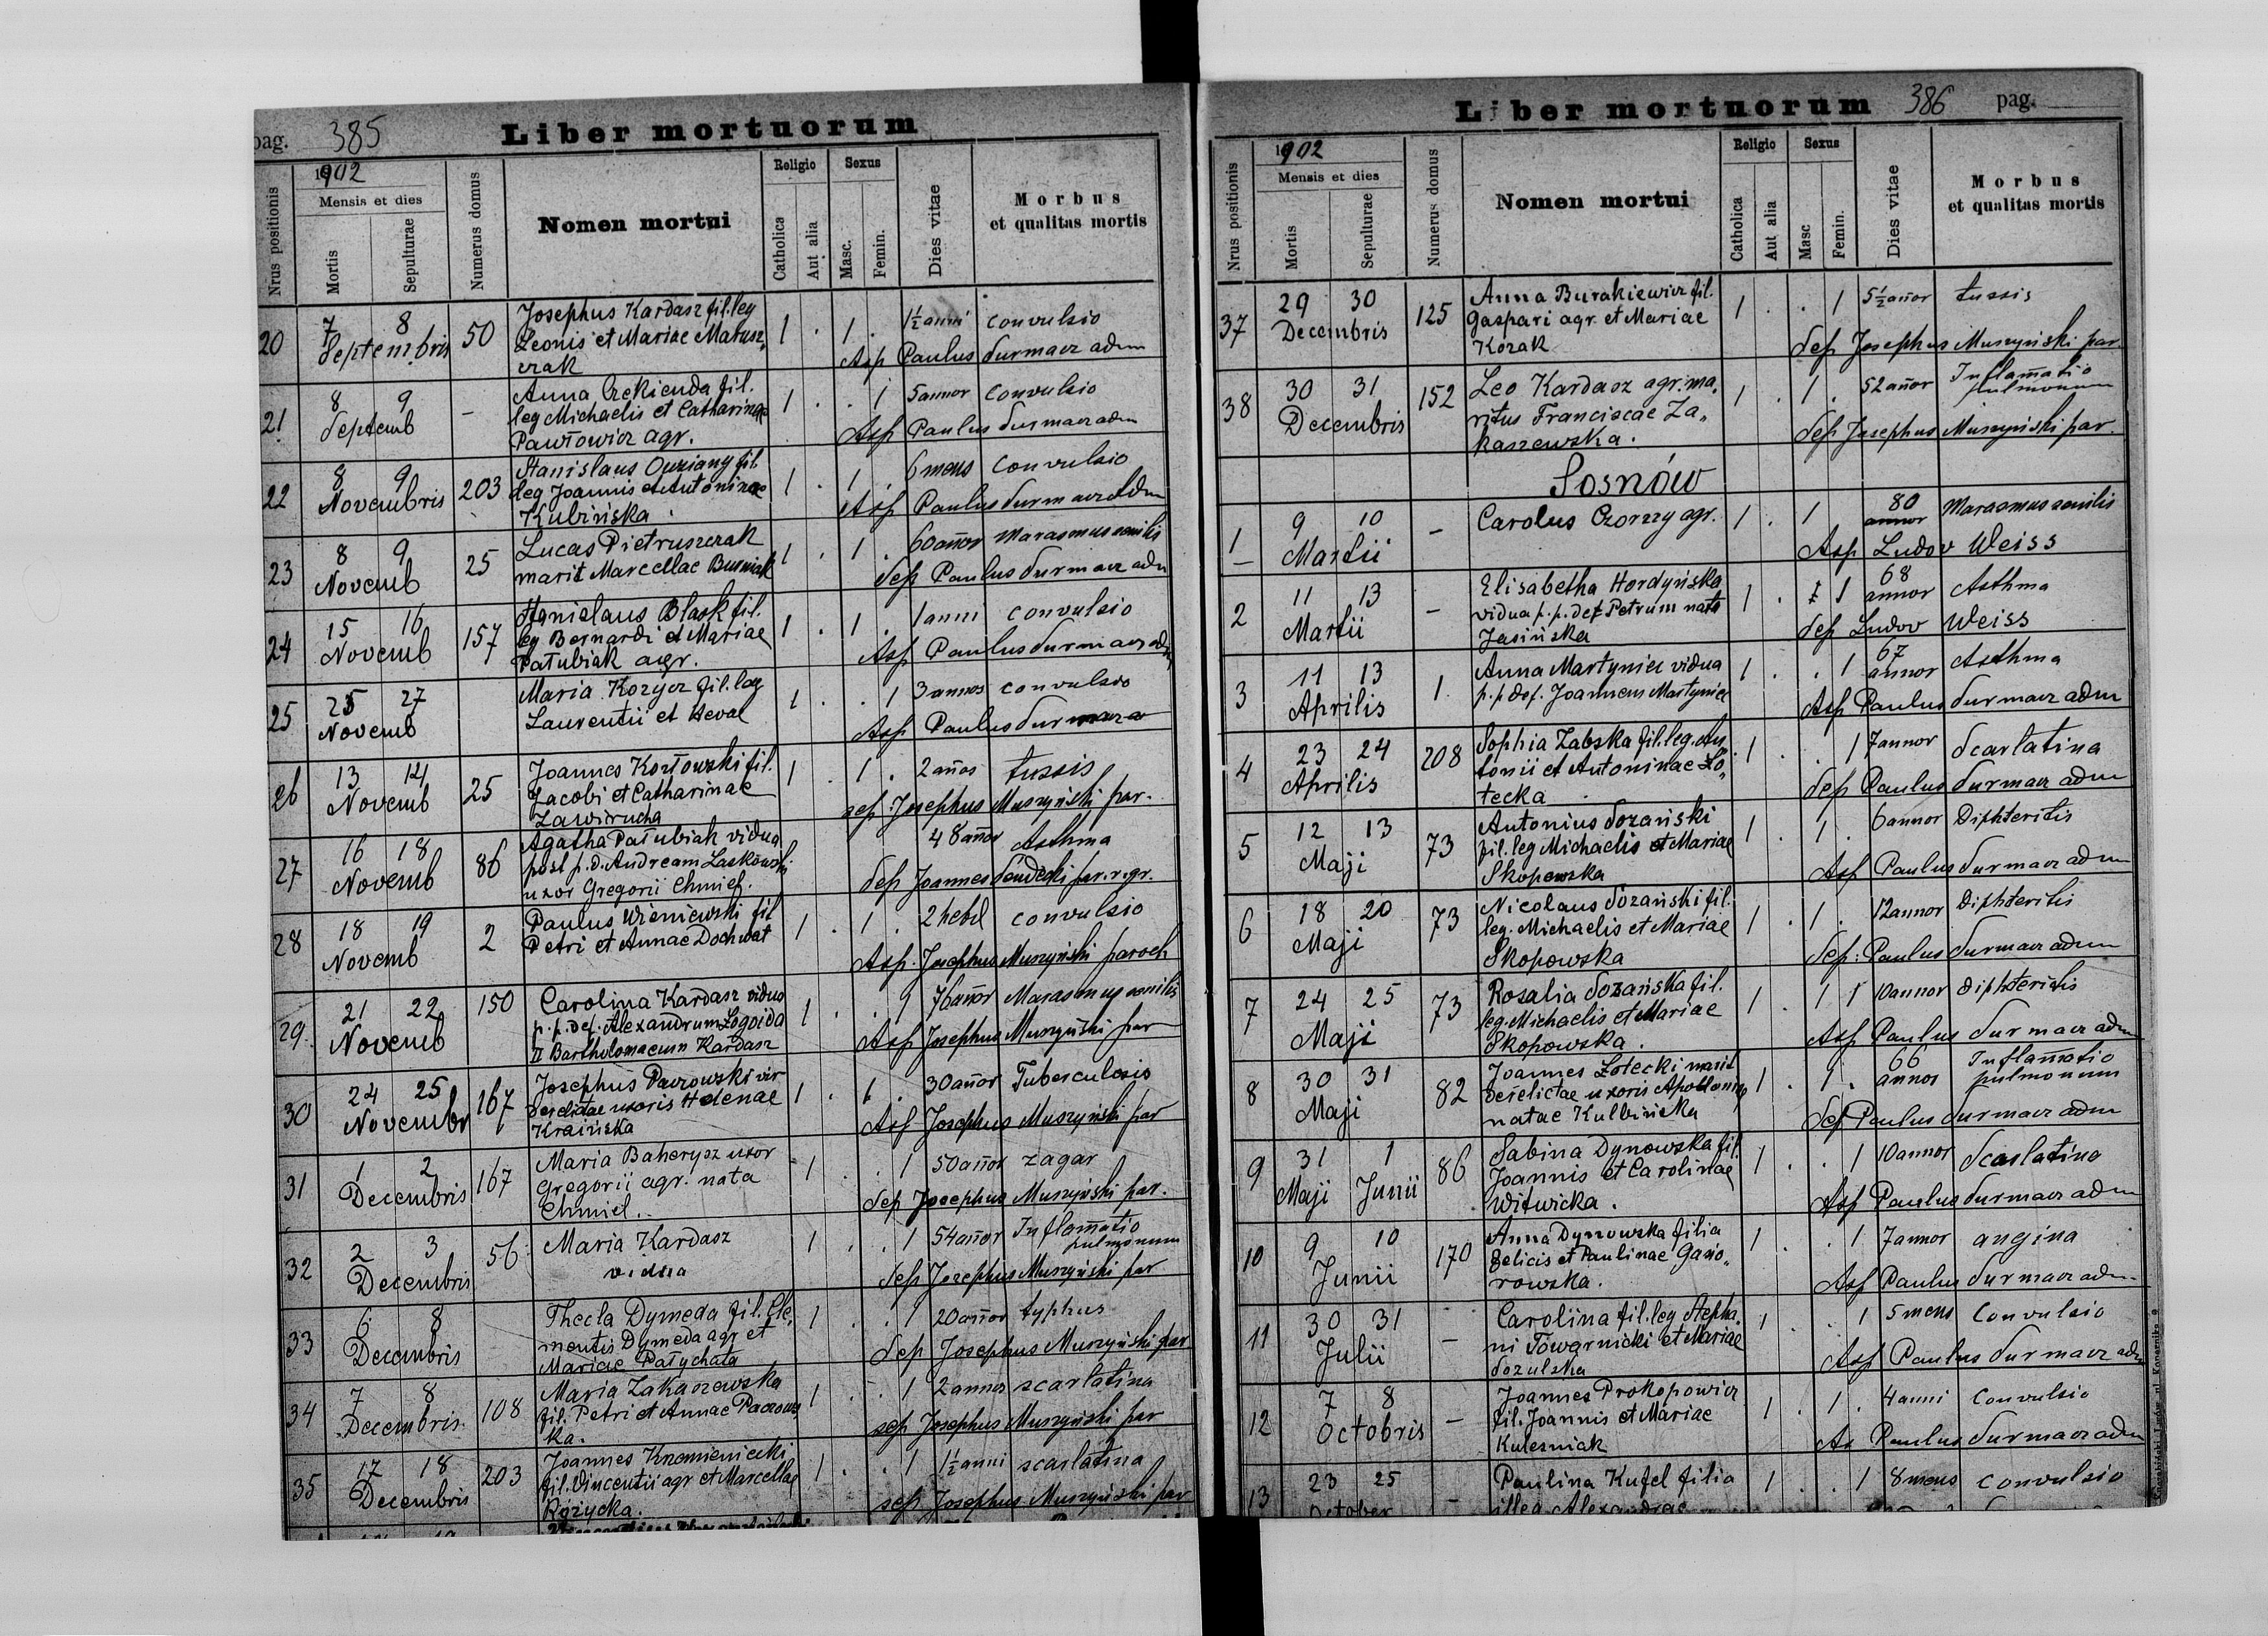 pag. 385 Liber mortuorum
Nrus positionis
1902
Mensis et dies
Mortis
Sepulturae
Numerus domus
Nomen mortui
Religio
Catholica
Aut alia
Sexus
Masc.
Femin.
Dies vitae
Morbus
et qualitas mortis
20 7 8 Septembris 50 Josephus Kardasz fil. leg
Leonis et Mariae Matusz„
czak
1 . 1 . 1½ anni convulsio
Asp Paulus Surmacz adm
21 8 9 Septemb - Anna Czekienda fil.
leg Michaelis et Catharinae
Pawłowicz agr.
1 . . 1 5 annor convulsio
Asp Paulus Surmacz adm
22 8 9 Novembris 203 Stanislaus fil
leg Joannis et Antoninae
Kubińska
1 . 1 . 6 mens convulsio
Asp Paulus Surmacz adm
23 8 9 Novemb 25 Lucas Pietruszczak
marit Marcellae Busniak
1 . 1 . 60 añor Marasmus senilis
Sep Paulus Surmacz adm
24 15 16 Novemb 157 Stanislaus Błask fil.
leg Bernardi et Mariae
Pałubiak agr.
1 . 1 . 1 anni convulsio
Asp Paulus Surmacz adm
25 25 27 Novemb Maria Kozycz fil. leg
Laurentii et
1 . . 1 3 annos convulsio
Asp Paulus Surmacz
26 13 14 Novemb 25 Joannes Kozłowski fil.
Jacobi et Catharinae
Zawirucha
1 . 1 . 2 años tussis
sep Josephus Muszyński par.
27 16 18 Novemb 86 Agatha Pałubiak vidua
post p.d. Andream Laskowski
uxor Gregorii Chmiel.
48 añor Asthma
Sep Joannes par. r. gr.
28 18 19 Novemb 2 Paulus Wisniewski fil
Petri et Annae Dochwat
1 . 1 . 2 hebd convulsio
Asp. Josephus Muszyński paroch
29. 21 22 Novemb 150 Carolina Kardasz vidua
p.p. def. Alexandrum Łogoida
II Bartholomaeum Kardasz
1 . . 1 76 añor Marasmus senilis
Asp Josephus Muszyński par
30 24 25 Novembr 167 Josephus Paczowski vir
derelictae uxoris Helenae
Kraińska
1 . 1 . 30 añor Tuberculosis
Asp Josephus Muszyński par
31 1 2 Decembris 167 Maria Baherysz uxor
Gregorii agr. nata
Chmiel.
1 . . 1 50 añor zagar
Sep Josephus Muszyński par.
32 2 3 Decembris 56 Maria Kardasz
vidua
1 . . 1 54 añor Inflamatio
pulmonum
Sep Josephus Muszyński par
33 6 8 Decembris Thecla Dymeda fil. Cle„
mentis Dymeda agr et
Mariae Pałychata
1 . . 1 20 añor typhus
Sep Josephus Muszyński par
34 7 8 Decembris 108 Maria Zakaszewska
fil. Petri et Annae Paczows
ka.
1 . . 1 2 annor scarlatina
sep Josephus Muszyński par
35 17 18 Decembris 203 Joannes Krzemieniecki
fil. Vincentii agr et Marcellae
Różycka.
1 . . 1 1½ anni scarlatina
sep Josephus Muszyński par
Liber mortuorum 386 pag.
Nrus positionis
1902
Mensis et dies
Mortis
Sepulturae
Numerus domus
Nomen mortui
Religio
Catholica
Aut alia
Sexus
Masc
Femin.
Dies vitae
Morbus
et qualitas mortis
37 29 30 Decembris 125 Anna Burakiewicz fil.
Gaspari agr. et Mariae
Kozak
1 . . 1 5½ añor tussis
Sep Josephus Muszyński par.
38 30 31 Decembris 152 Leo Kardasz agr. ma„
ritus Franciscae Za„
kaszewska.
1 . 1 . 52 añor Inflamatio
pulmonum
Sep Josephus Muszyński par.
Sosnów
1 9 10 Martii - Carolus Czorzy agr.
1 . 1 80
annor Marasmus senilis
Asp Ludov Weiss
2 11 13 Martii - Elisabetha Hordyńska
vidua p.p. def Petrum nata
Jasińska
1 . 1 68
annor Asthma
Sep Ludov Weiss
3 11 13 Aprilis 1. Anna Martyniec vidua
p.p. def. Joannem Martyniec
1 . . 1 67
annor Asthma
Asp Paulus Surmacz adm
4 23 24 Aprilis 208 Sophia Zabska fil. leg. An„
tonii et Antoninae Zo„
tecka
1 . . 1 7 annor Scarlatina
Sep Paulus Surmacz adm
5 12 13 Maji 73 Antonius Sozański
fil. leg Michaelis et Mariae
Skopowska
1 . 1 . 6 annor Diphteritis
Asp Paulus Surmacz adm
6 18 20 Maji 73 Nicolaus Sozański fil.
leg. Michaelis et Mariae
Skopowska
1 . 1 . 12 annor Diphteritis
Sep. Paulus Surmacz adm
7 24 25 Maji 73 Rosalia Sozańska fil.
leg. Michaelis et Mariae
Skopowska.
1 . 1 1 10 annor Diphteritis
Asp Paulus Surmacz adm
8 30 31 Maji 82 Joannes Zotecki marit
derelictae uxoris Apolloniae
natae Kulbińska
1 . 1 . 66
annos Inflamatio
pulmonum
Sep Paulus Surmacz adm
9 31 1 Maji Junii 86 Sabina Dynowska fil.
Joannis et Carolinae
Witwicka.
1 . . 1 10 annor Scarlatina
Asp Paulus Surmacz adm
10 9 10 Junii 170 Anna Dynowska filia
Felicis et Paulinae Gasio„
rowska.
1 . . 1 7 annor angina
Asp Paulus Surmacz adm
11 30 31 Julii - Caroliina fil. leg Stepha„
ni Towarnicki et Mariae
Sozulska
1 . . 1 5 mens Convulsio
Asp Paulus Surmacz adm
12 7 8 Octobris - Joannes Prokopowicz
fil. Joannis et Mariae
Kulesniak
1 . 1 . 4 anni Convulsio
As Paulus Surmacz adm
13 23 25 October - Paulina Kufel filia
illeg. Alexandrae
1 . . 1 8 mens convulsio